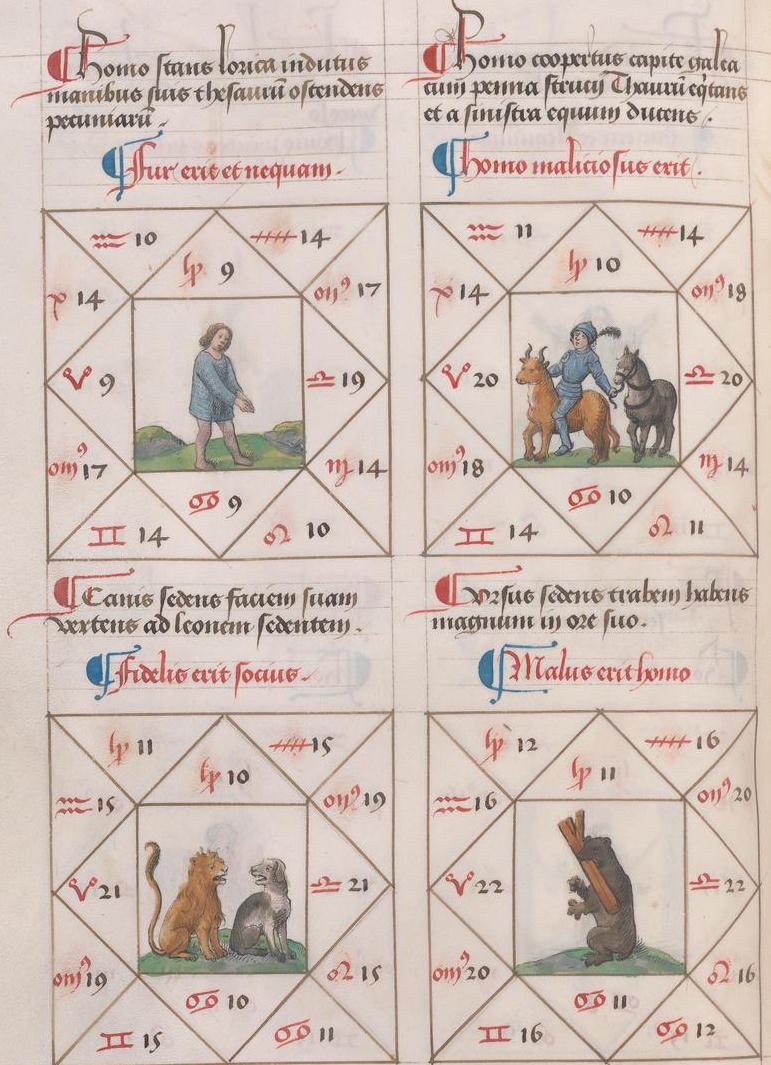 Homo stans lorica indutus
manibus suis thesaurū ostendens
pecuniarū.
Fur erit et nequam.
♒ 10
14
9
14
omꝰ 17
♈ 9
♎ 19
omꝰ 17
14
♋ 9
♊ 14
♌ 10
Homo coopertus capite galea
cum penna strucij Thaurū
et a sinistra equum ducens.
homo maliciosus erit.
♒ 11
14
10
14
omꝰ 18
♈ 20
♎ 20
omꝰ 18
14
♋ 10
♊ 14
♌ 11
Canis sedens faciem suam
vertens ad leonem sedentem.
Fidelis erit socius.
11
15
10
♒ 15
omꝰ 19
♈ 21
♎ 21
omꝰ 19
♌ 15
♋ 10
♊ 15
♋ 11
Vrsus sedens trabem habens
magnum in ore suo.
Malus erit homo
12
16
11
♒ 16
omꝰ 20
♈ 22
♎ 22
omꝰ 20
♌ 16
♋ 11
♊ 16
♋ 12